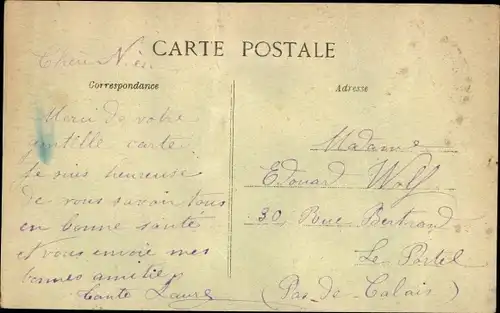 CARTE POSTALE
Correspondance
Adresse
Merci de votre
gentille carte
Je suis heureuse
de vous savoir tous
en bonne santé
et vous envoie mes
bonnes amitiés
Tante Laure
Madame
Edouard Wolf
30 Rue Bertrand
Le Portel
(Pas-de-Calais)